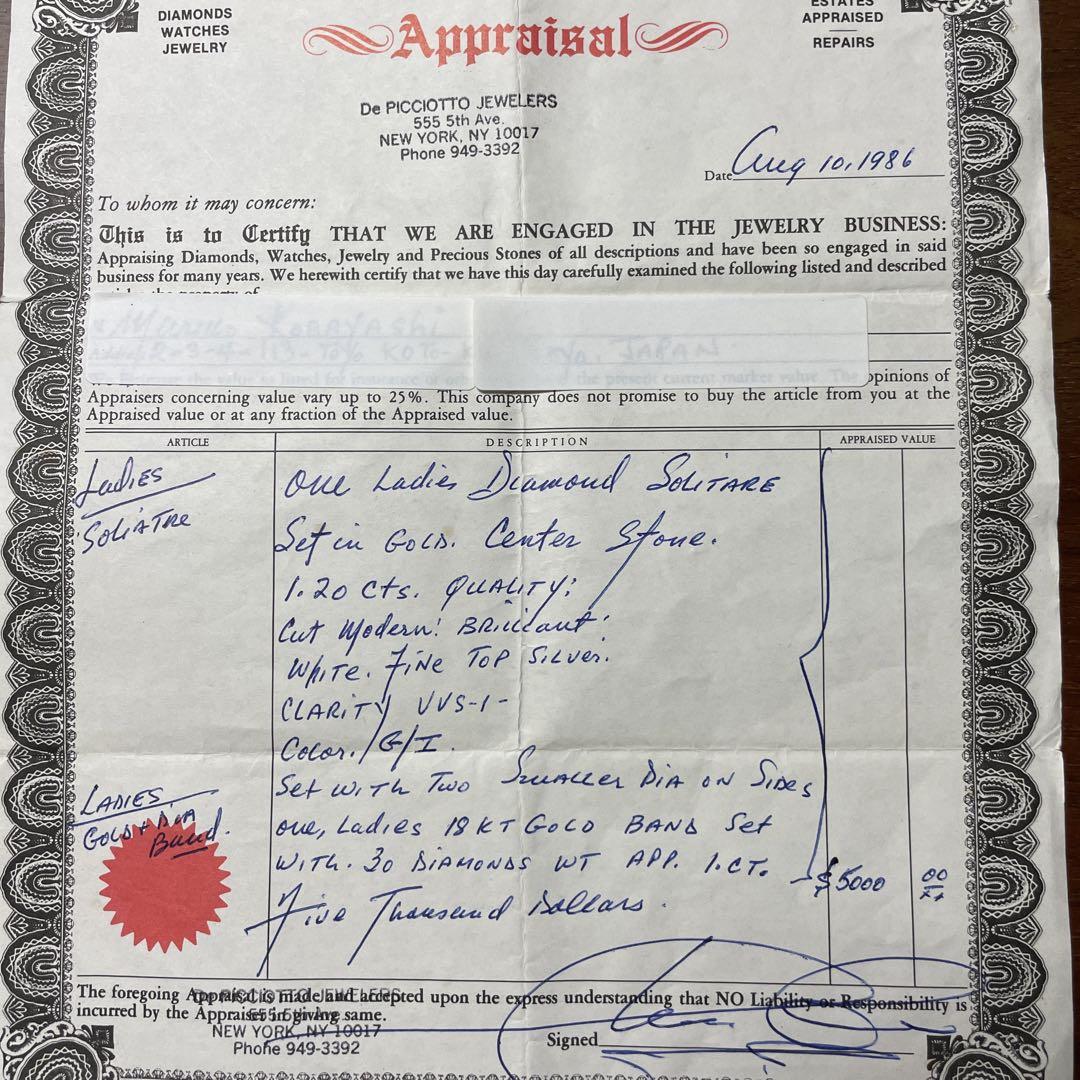 DIAMONDS
WATCHES
JEWELRY
Appraisal
ESTATES
APPRAISED
REPAIRS
De PICCIOTTO JEWELERS
555 5th Ave.
NEW YORK, NY 10017
Phone 949-3392
Date Aug 10, 1986
To whom it may concern:
This is to Certify THAT WE ARE ENGAGED IN THE JEWELRY BUSINESS:
Appraising Diamonds, Watches, Jewelry and Precious Stones of all descriptions and have been so engaged in said
business for many years. We herewith certify that we have this day carefully examined the following listed and described
JAPAN
the present current market value. The opinions of
Appraisers concerning value vary up to 25%. This company does not promise to buy the article from you at the
Appraised value or at any fraction of the Appraised value.
ARTICLE DESCRIPTION APPRAISED VALUE
Ladies
SOLIATRE
One Ladies Diamond SOLITARE
Set in GOLD. Center Stone.
1.20 cts. QUALITY:
Cut Modern! BRILLANT:
WHITE. FINE TOP SILVER.
CLARITY VVS-1-
Color. / G/I.
Set WITH Two Smaller DIA ON SIDES
LADIES
GOLD + DIA
Band.
one, Ladies 18 KT GOLD BAND Set
WITH. 30 DIAMONDS WT APP. 1.CT. - $5000 00
Five Thousand Dollars.
The foregoing Appraisal is made and accepted upon the express understanding that NO Liability or Responsibility is
incurred by the Appraiser in giving same.
De PICCIOTTO JEWELERS
555 5th Ave.
NEW YORK, NY 10017
Phone 949-3392
Signed